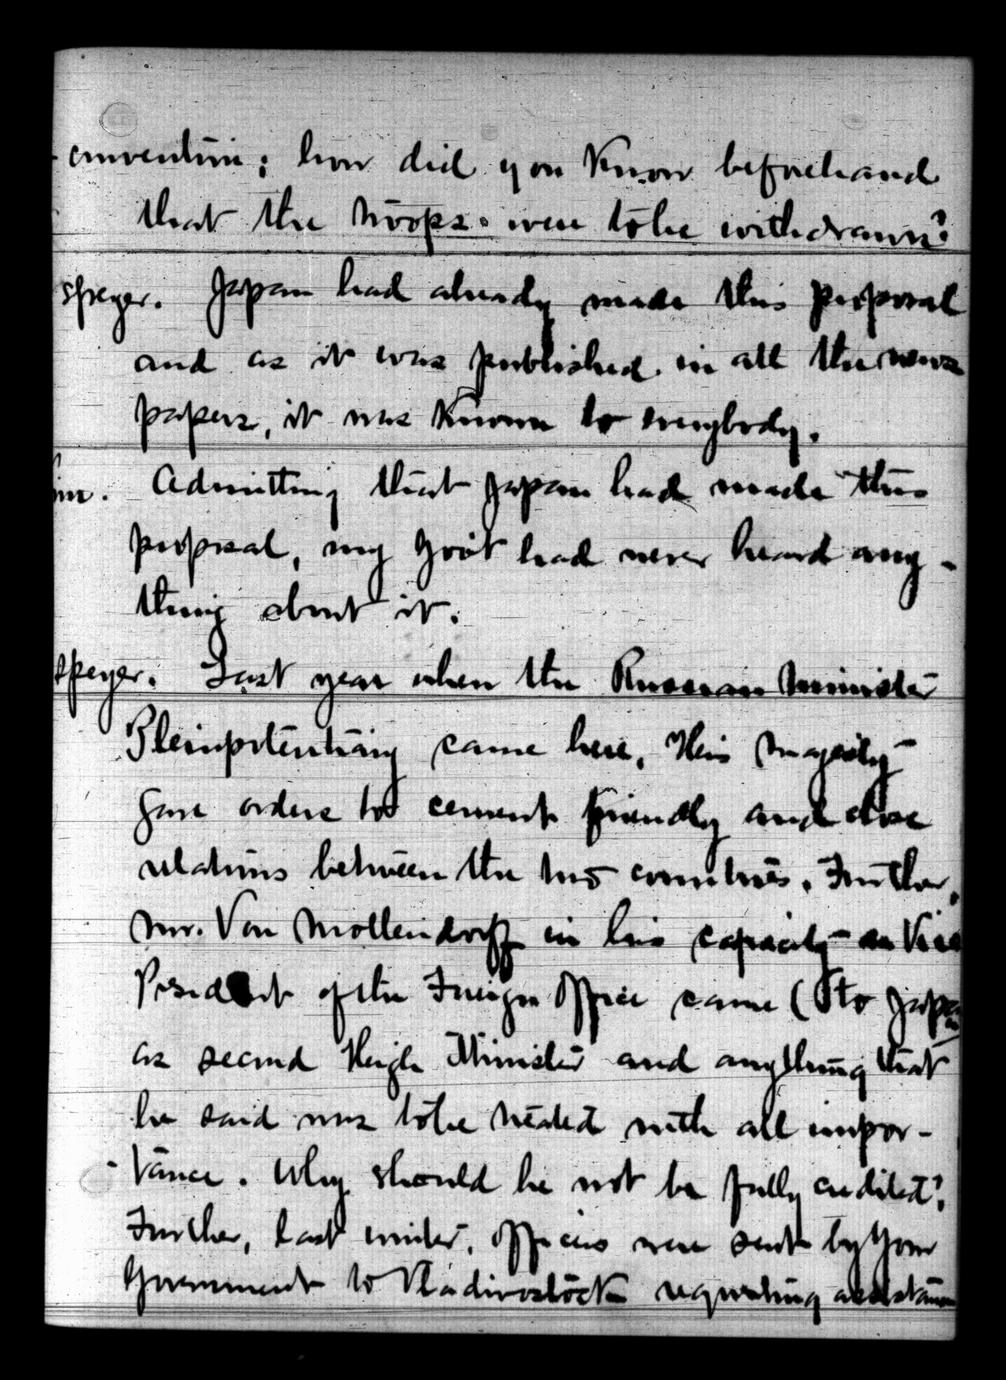 -convention; how did you know beforehand
that the troops were to be withdrawn?
Speyer. Japan had already made this proposal
and as it was published in all the news
papers, it was known to everybody.
im. Admitting that Japan had made this
proposal, my Gov't had never heard any-
thing about it.
Speyer. Last year when the Russian Minister
Pleinpotentiary came here, His Majesty
gave orders to cement friendly and close
relations between the two countries. Further,
Mr. Von Mollendorff in his capacity as Vice
President of the Foreign Office came (to Japan
as second High Minister and anything that
he said was to be treated with all impor-
-tance. Why should he not be fully credited?
Further, last winter, officers were sent by your
Government to Vladivostock requesting assistance